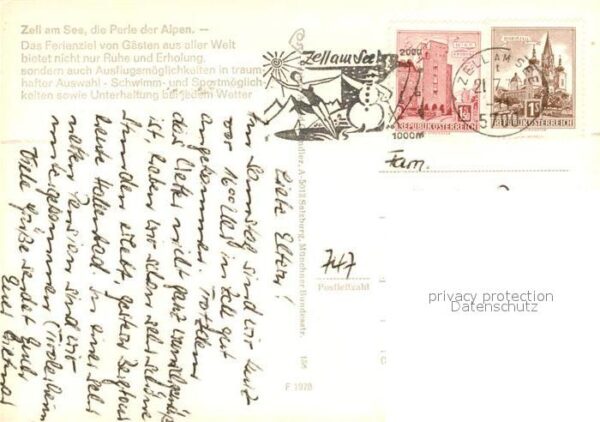 Zell am See, die Perle der Alpen. —
Das Ferienziel von Gästen aus aller Welt
bietet nicht nur Ruhe und Erholung,
sondern auch Ausflugsmöglichkeiten in traum-
hafter Auswahl - Schwimm- und Sportmöglich-
keiten sowie Unterhaltung bei jedem Wetter
Zell am See
2000
1000m
REPUBLIK ÖSTERREICH
ZELL AM SEE
21
5700
1S
REPUBLIK ÖSTERREICH
Fam.
Liebe Eltern!
Am Samstag sind wir kurz
vor 1600 Uhr in Zell gut
angekommen. Trotzdem
das Wetter nicht ganz
ist haben wir schon sehr schöne
Stunden erlebt, gestern
heute Hallenbad. In einer sehr
netten Pension sind wir
untergekommen
Viele Grüße sendet Euch
Euer
A-5012 Salzburg, Münchner Bundesstr. 156
F 1928
747
Postleitzahl
privacy protection
Datenschutz